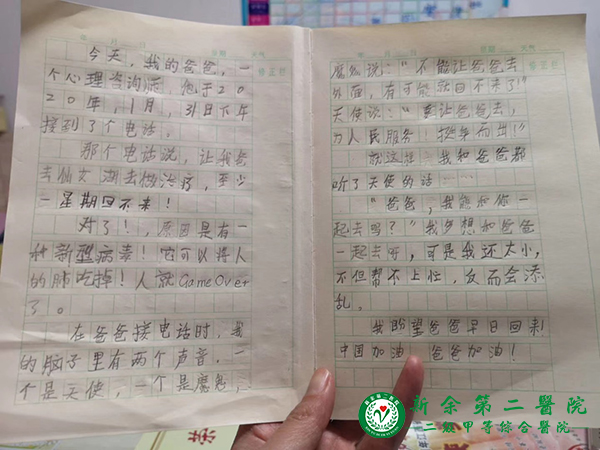 年 月 日 星期 天气
今天，我的爸爸，一
个心理咨询师，他于20
20年，1月，31日下午
接到了个电话。
那个电话说，让我爸
去仙女湖去做治疗，至少
一星期回不来！
对了！，原因是有一
种新型病毒！它可以将人
的肺吃掉！人就Game Over
了。
在爸爸接电话时，我
的脑子里有两个声音，一
个是天使，一个是魔鬼，
魔鬼说：“不能让爸爸去
外面，有可能就回不来了！”
天使说：“要让爸爸去，
为人民服务！挺身而出！”
就这样……我和爸爸都
听了天使的话……
“爸爸，我能和你一
起去吗？”我多想和爸爸
一起去呀，可是我还太小，
不但帮不上忙，反而会添
乱。
我盼望爸爸早日回来！
中国加油！爸爸加油！
新余第二醫院
二级甲等综合醫院